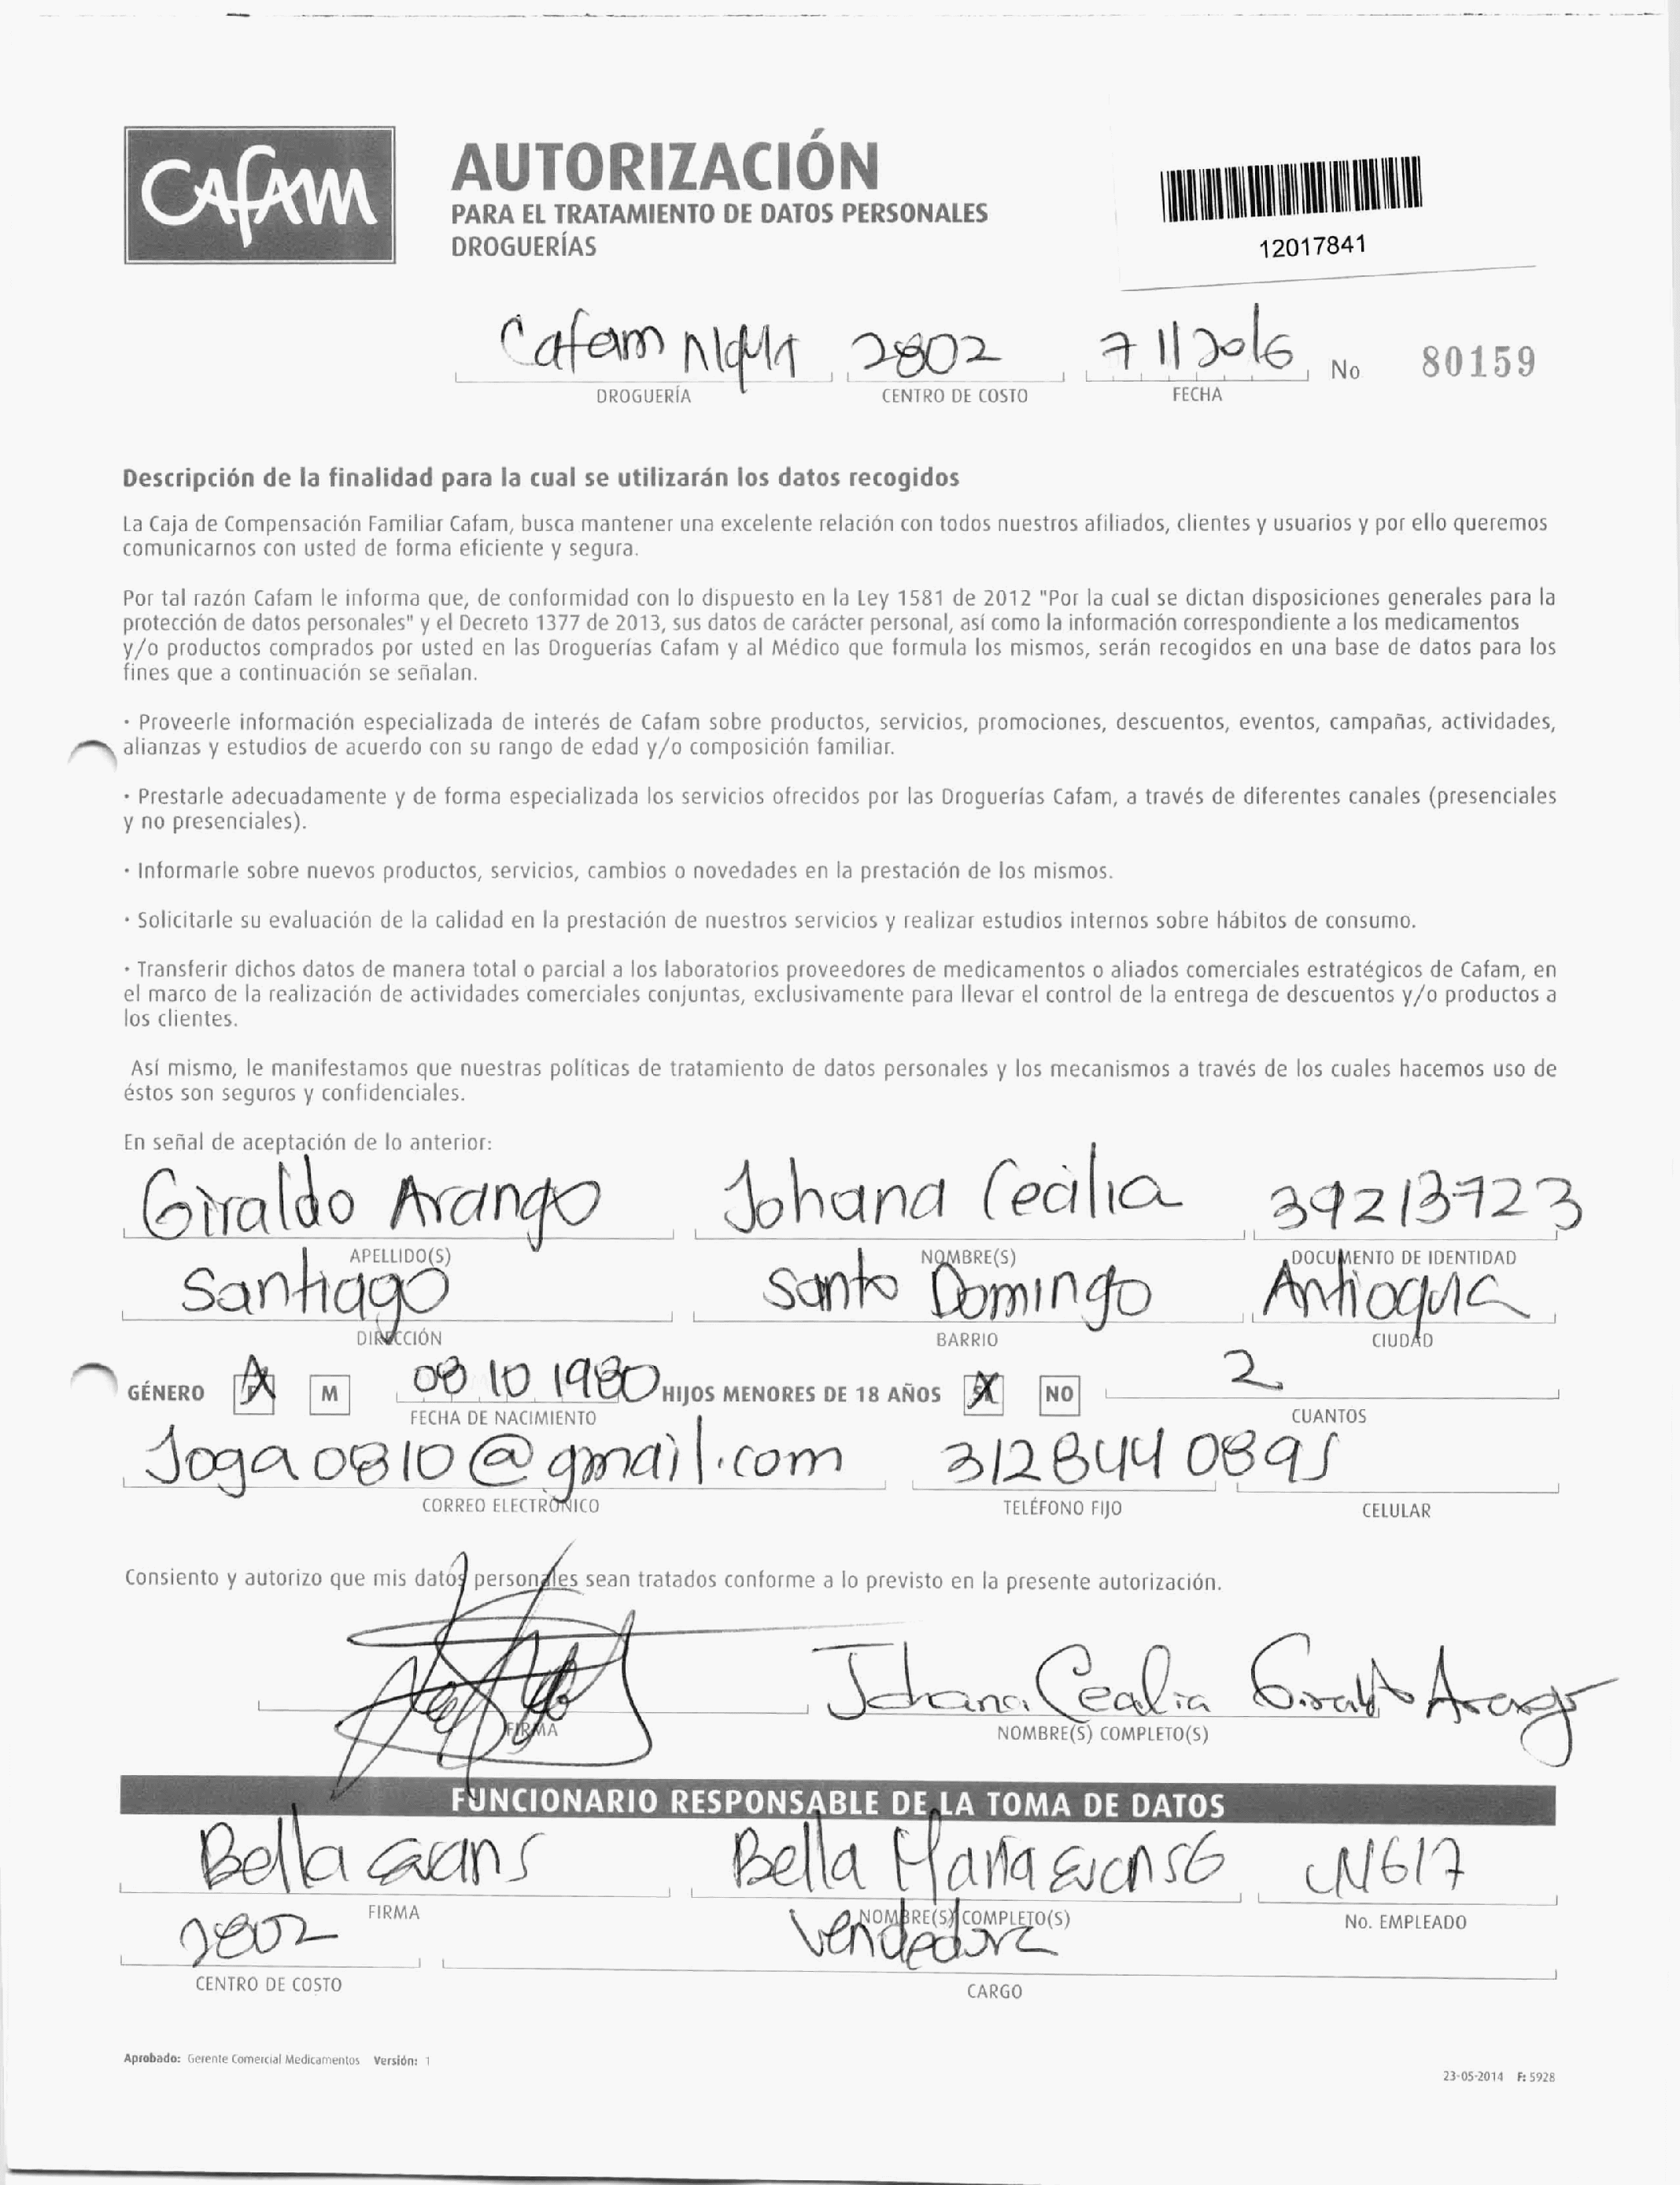 CAFAM
AUTORIZACIÓN
PARA EL TRATAMIENTO DE DATOS PERSONALES
DROGUERÍAS
12017841
Cafam 2802 7 11 2016 No 80159
DROGUERÍA CENTRO DE COSTO FECHA
Descripción de la finalidad para la cual se utilizarán los datos recogidos
La Caja de Compensación Familiar Cafam, busca mantener una excelente relación con todos nuestros afiliados, clientes y usuarios y por ello queremos
comunicarnos con usted de forma eficiente y segura.
Por tal razón Cafam le informa que, de conformidad con lo dispuesto en la Ley 1581 de 2012 "Por la cual se dictan disposiciones generales para la
protección de datos personales" y el Decreto 1377 de 2013, sus datos de carácter personal, así como la información correspondiente a los medicamentos
y/o productos comprados por usted en las Droguerías Cafam y al Médico que formula los mismos, serán recogidos en una base de datos para los
fines que a continuación se señalan.
· Proveerle información especializada de interés de Cafam sobre productos, servicios, promociones, descuentos, eventos, campañas, actividades,
alianzas y estudios de acuerdo con su rango de edad y/o composición familiar.
· Prestarle adecuadamente y de forma especializada los servicios ofrecidos por las Droguerías Cafam, a través de diferentes canales (presenciales
y no presenciales).
· Informarle sobre nuevos productos, servicios, cambios o novedades en la prestación de los mismos.
· Solicitarle su evaluación de la calidad en la prestación de nuestros servicios y realizar estudios internos sobre hábitos de consumo.
· Transferir dichos datos de manera total o parcial a los laboratorios proveedores de medicamentos o aliados comerciales estratégicos de Cafam, en
el marco de la realización de actividades comerciales conjuntas, exclusivamente para llevar el control de la entrega de descuentos y/o productos a
los clientes.
Así mismo, le manifestamos que nuestras políticas de tratamiento de datos personales y los mecanismos a través de los cuales hacemos uso de
éstos son seguros y confidenciales.
En señal de aceptación de lo anterior:
Giraldo Arango Johana Cecilia 39213723
APELLIDO(S) NOMBRE(S) DOCUMENTO DE IDENTIDAD
Santiago Santo Domingo Antioquia
DIRECCIÓN BARRIO CIUDAD
GÉNERO X M 08 10 1980 HIJOS MENORES DE 18 AÑOS X NO 2
FECHA DE NACIMIENTO CUANTOS
Joga0810@gmail.com 3128440895
CORREO ELECTRÓNICO TELÉFONO FIJO CELULAR
Consiento y autorizo que mis datos personales sean tratados conforme a lo previsto en la presente autorización.
Johana Cecilia Giraldo Arango
FIRMA NOMBRE(S) COMPLETO(S)
FUNCIONARIO RESPONSABLE DE LA TOMA DE DATOS
Bella Evans Bella Maria Evans G N617
FIRMA NOMBRE(S) COMPLETO(S) No. EMPLEADO
2802 Vendedora
CENTRO DE COSTO CARGO
Aprobado: Gerente Comercial Medicamentos Versión: 1
23-05-2014 F: 5928